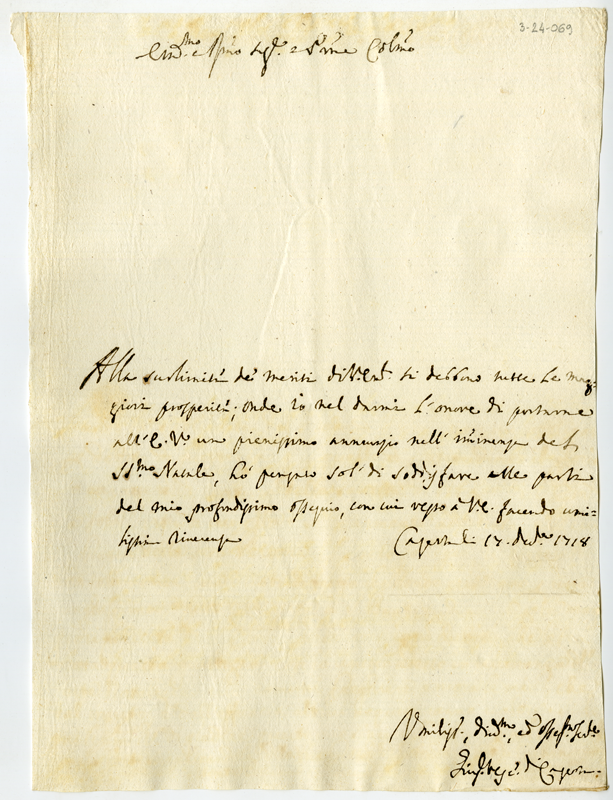 3-24-069
Em.mo e Rmo Sig.r e Pr̃ne Colmo
Alla sublimità de' meriti di V. Em.a si debbono tutte le mag-
giori prosperità; onde io nel darmi l'onore di portarne
all'E. V.a un pienissimo annunzio nell'imminenza del
SS.mo Natale, hò pensato sol di soddisfare alle parti
del mio profondissimo ossequio, con cui resto à V. E. facendo umi-
lissima riverenza Caserta li 17. Dec.e 1718
Umiliss.o, Div.mo, ed
di Caserta